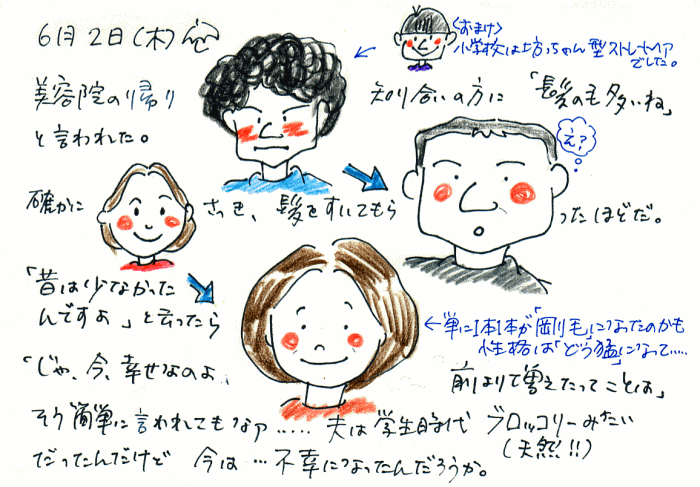 6月2日(木)
〈おまけ〉
小学校は坊っちゃん型ストレートヘア
でした。
美容院の帰り 知り合いの方に 「髪の毛多いね」
と言われた。
え?
確かに さっき、髪をすいてもらったほどだ。
「昔は少なかった
んですよ」と言ったら
←単に1本1本が「剛毛」になったのかも
性格は「どう猛」になって.....
「じゃ、今、幸せなのよ、 前より増えたってことは」
そう簡単に言われてもなァ..... 夫は学生時代 ブロッコリーみたい
(天然!!)
だったんだけど 今は…不幸になったんだろうか。